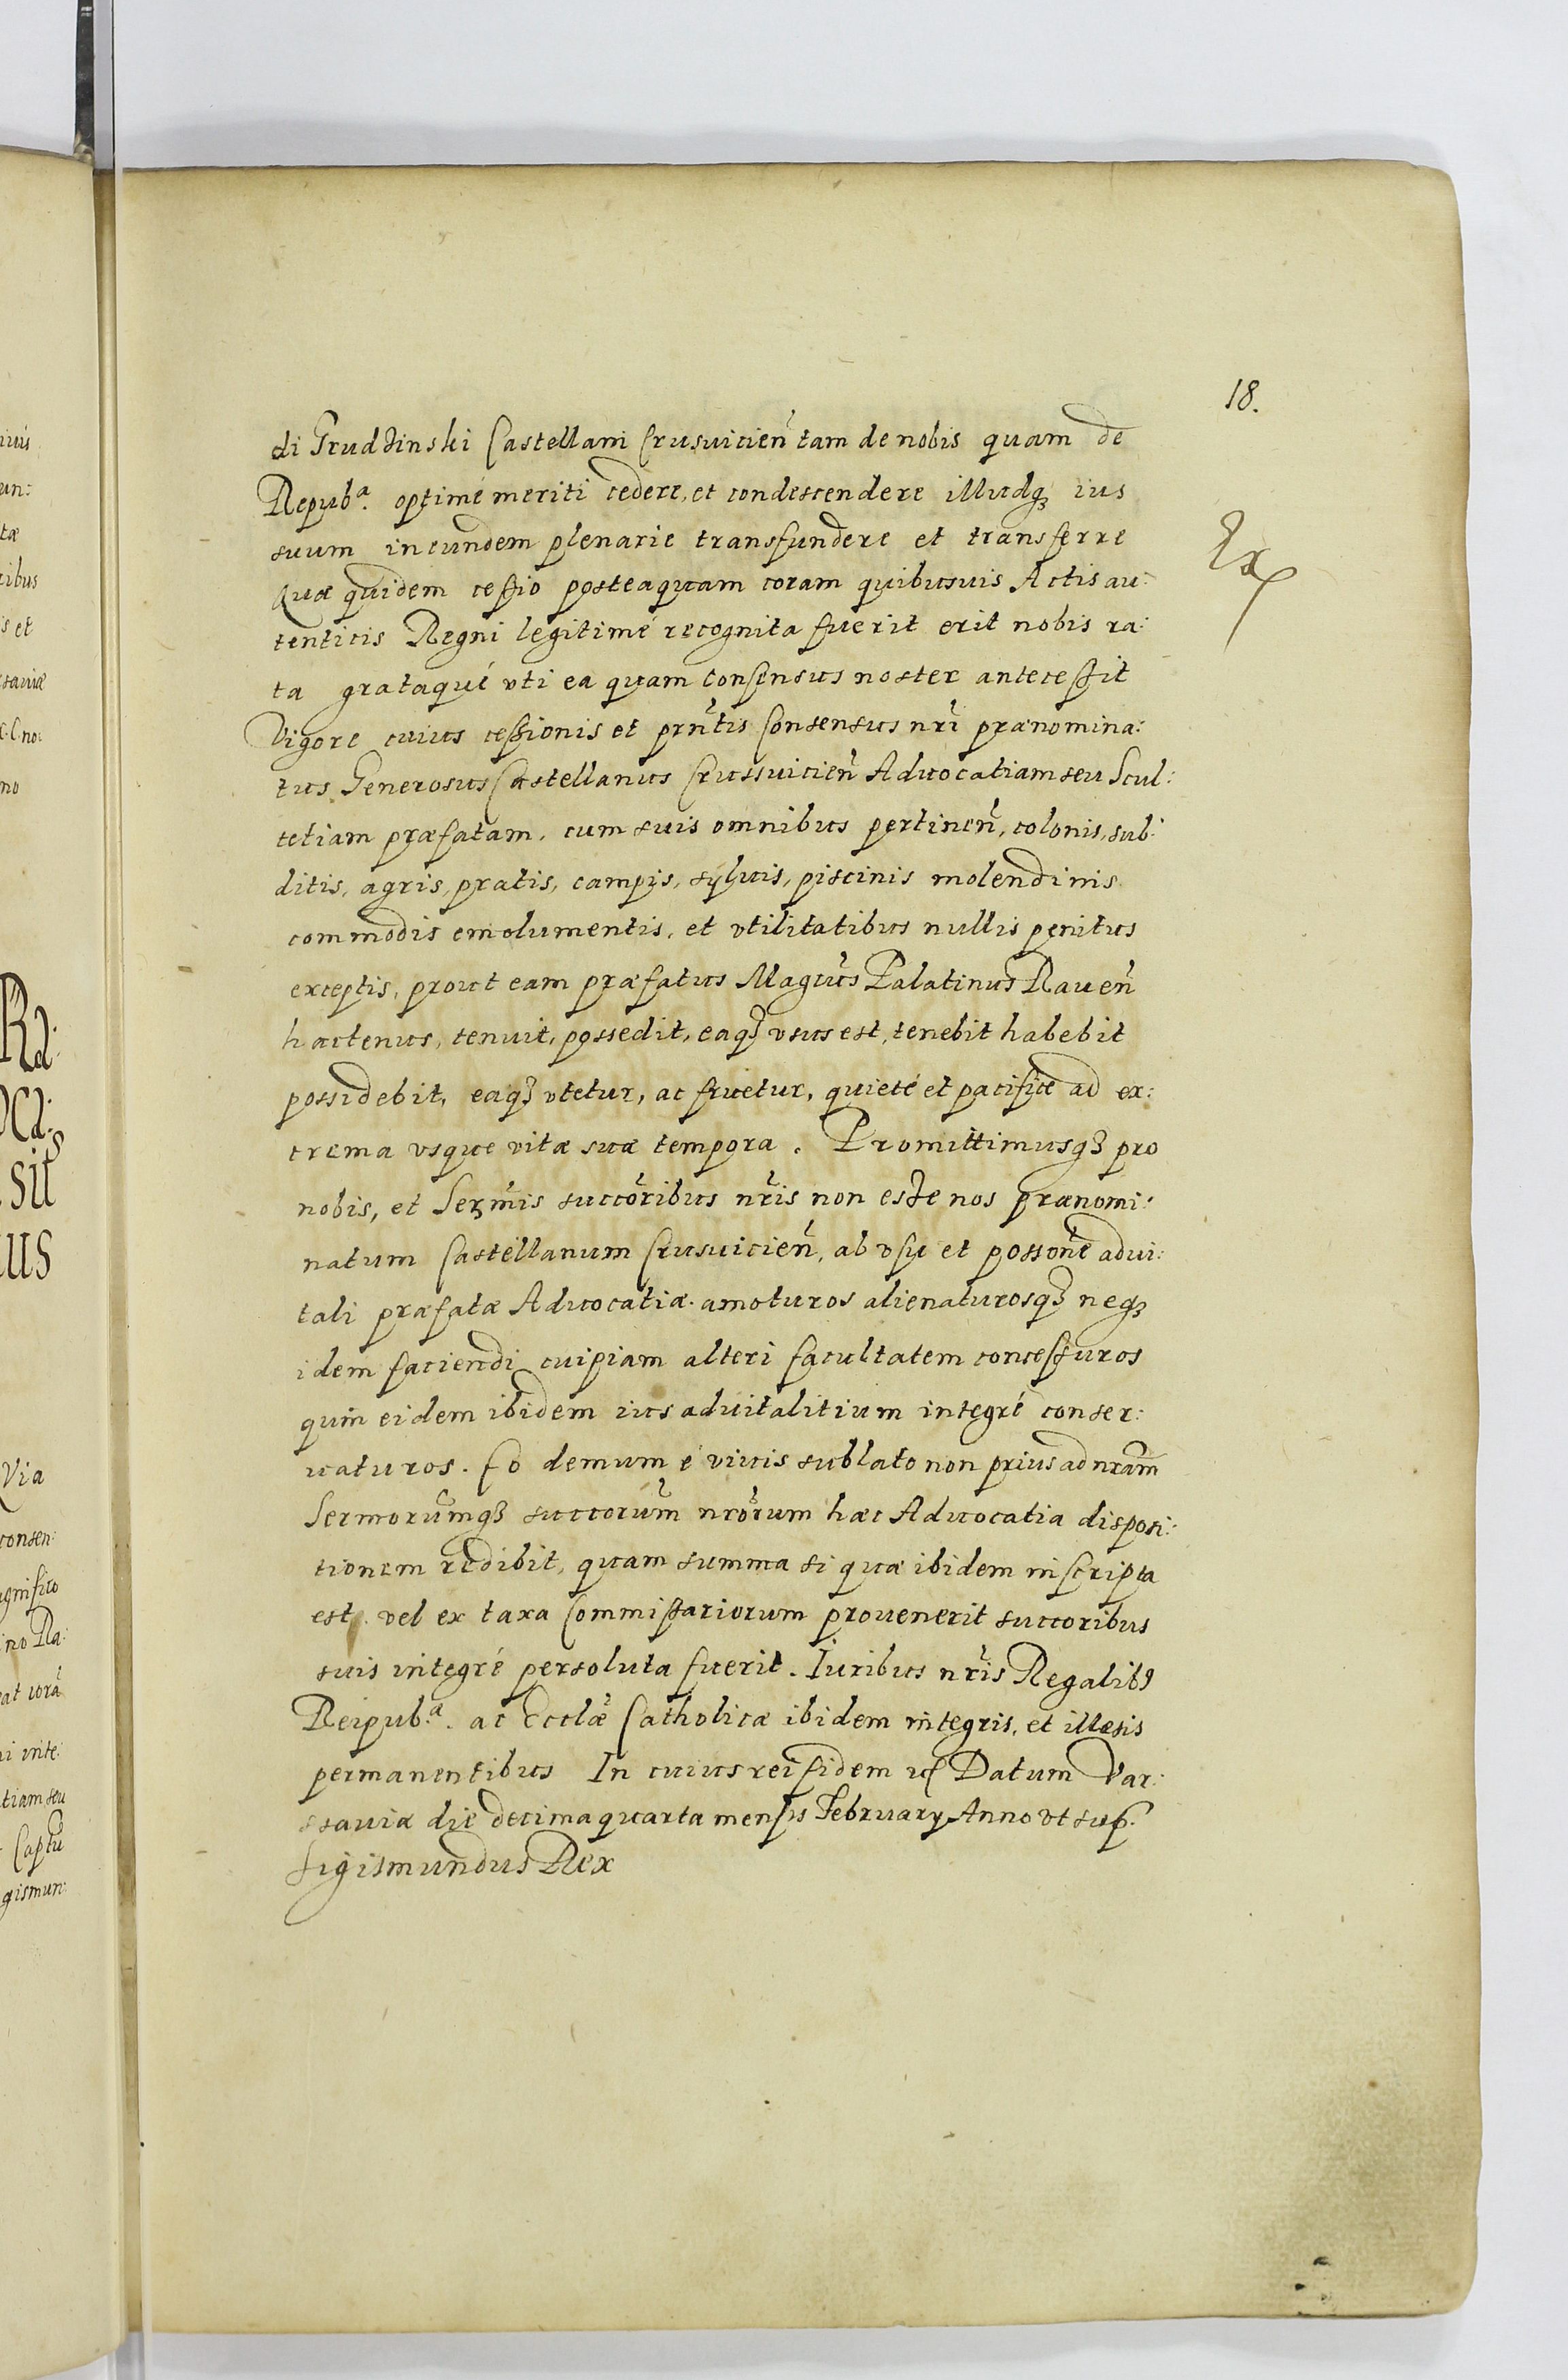 18.
di Grudzinski Castellani Crusuicień tam de nobis quam de
Repub.a optimé meriti cedere, et condescendere illudqз ius
suum in eundem plenarie transfundere et transferre
Ex
Quæ quidem cessio posteaquam coram quibusuis Actis au:
tenticis Regni legitimé recognita fuerit erit nobis ra:
ta grataqué vti ea quam consensus noster antecessit
Vigore cuius cessionis et prñtis Consensus nr̃i prænomina:
tus Generosus Castellanus Crussuicień Aduocatiam seu Scul:
tetiam præfatam, cum suis omnibus pertineñ, colonis, sub:
ditis, agris, pratis, campis, syluis, piscinis molendinis
commodis emolumentis, et vtilitatibus nullis penitus
exceptis, prout eam præfatus Magcus Palatinus Raueñ
hactenus, tenuit, possedit, eaqз vsus est, tenebit habebit
possidebit, eaqз vtetur, ac fruetur, quieté et pacifice ad ex:
trema vsque vitæ suæ tempora. Promittimusqз pro
nobis, et Serm̃is succõribus nr̃is non esse nos prænomi:
natum Castellanum Crusuicieñ, ab vsu et possõne adui:
tali præfatæ Aduocatiæ amoturos alienaturosqз neqз
idem faciendi cuipiam alteri facultatem concessuros
quin eidem ibidem ius aduitalitium integré conser:
uaturos. Eo demum é viuis sublato non prius ad nr̃am
Sermorum̃qз succorum̃ nrõrum hæc Aduocatia disposi:
tionem redibit, quam summa si quæ ibidem inscripta
est, vel ex taxa Commissariorum prouenerit succoribus
suis integré persoluta fuerit. Iuribus nr̃is Regalibɡ
Reipub.æ ac Ecclæ̃ Catholicæ ibidem integris, et illæsis
permanentibus In cuius rei fidem Datum Var:
ssauiæ die decima quarta mensis February Anno vt sup.
Sigismundus Rex